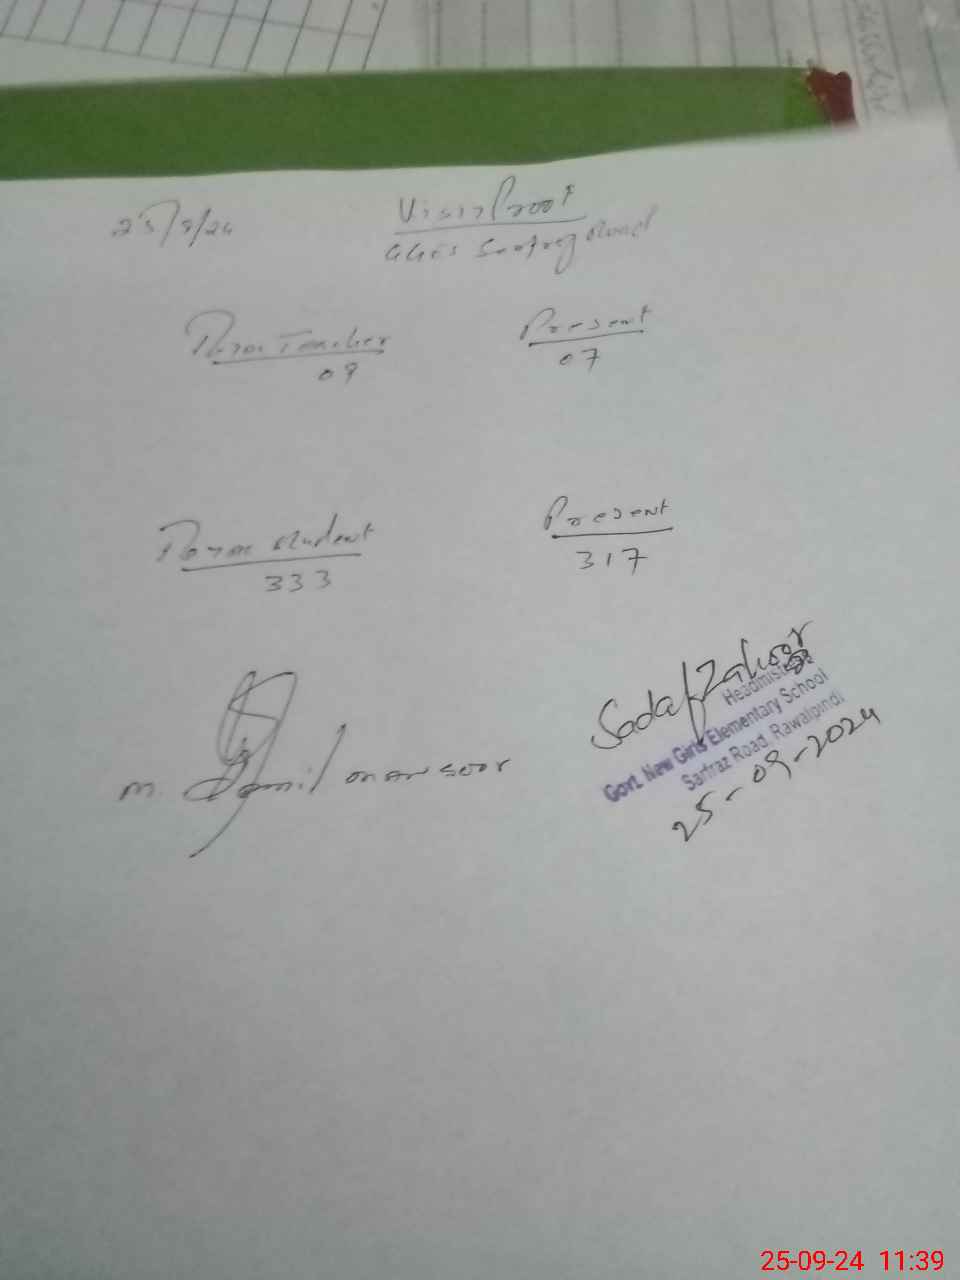 25/9/24
Visit Proof
GGES Sarfraz Road
Teacher
09
Present
07
student
333
Present
317
M. Jamil Mansoor
Sadaf Zahoor
Headmistress
Govt. New Girls Elementary School
Sarfraz Road, Rawalpindi
25-09-2024
25-09-24 11:39